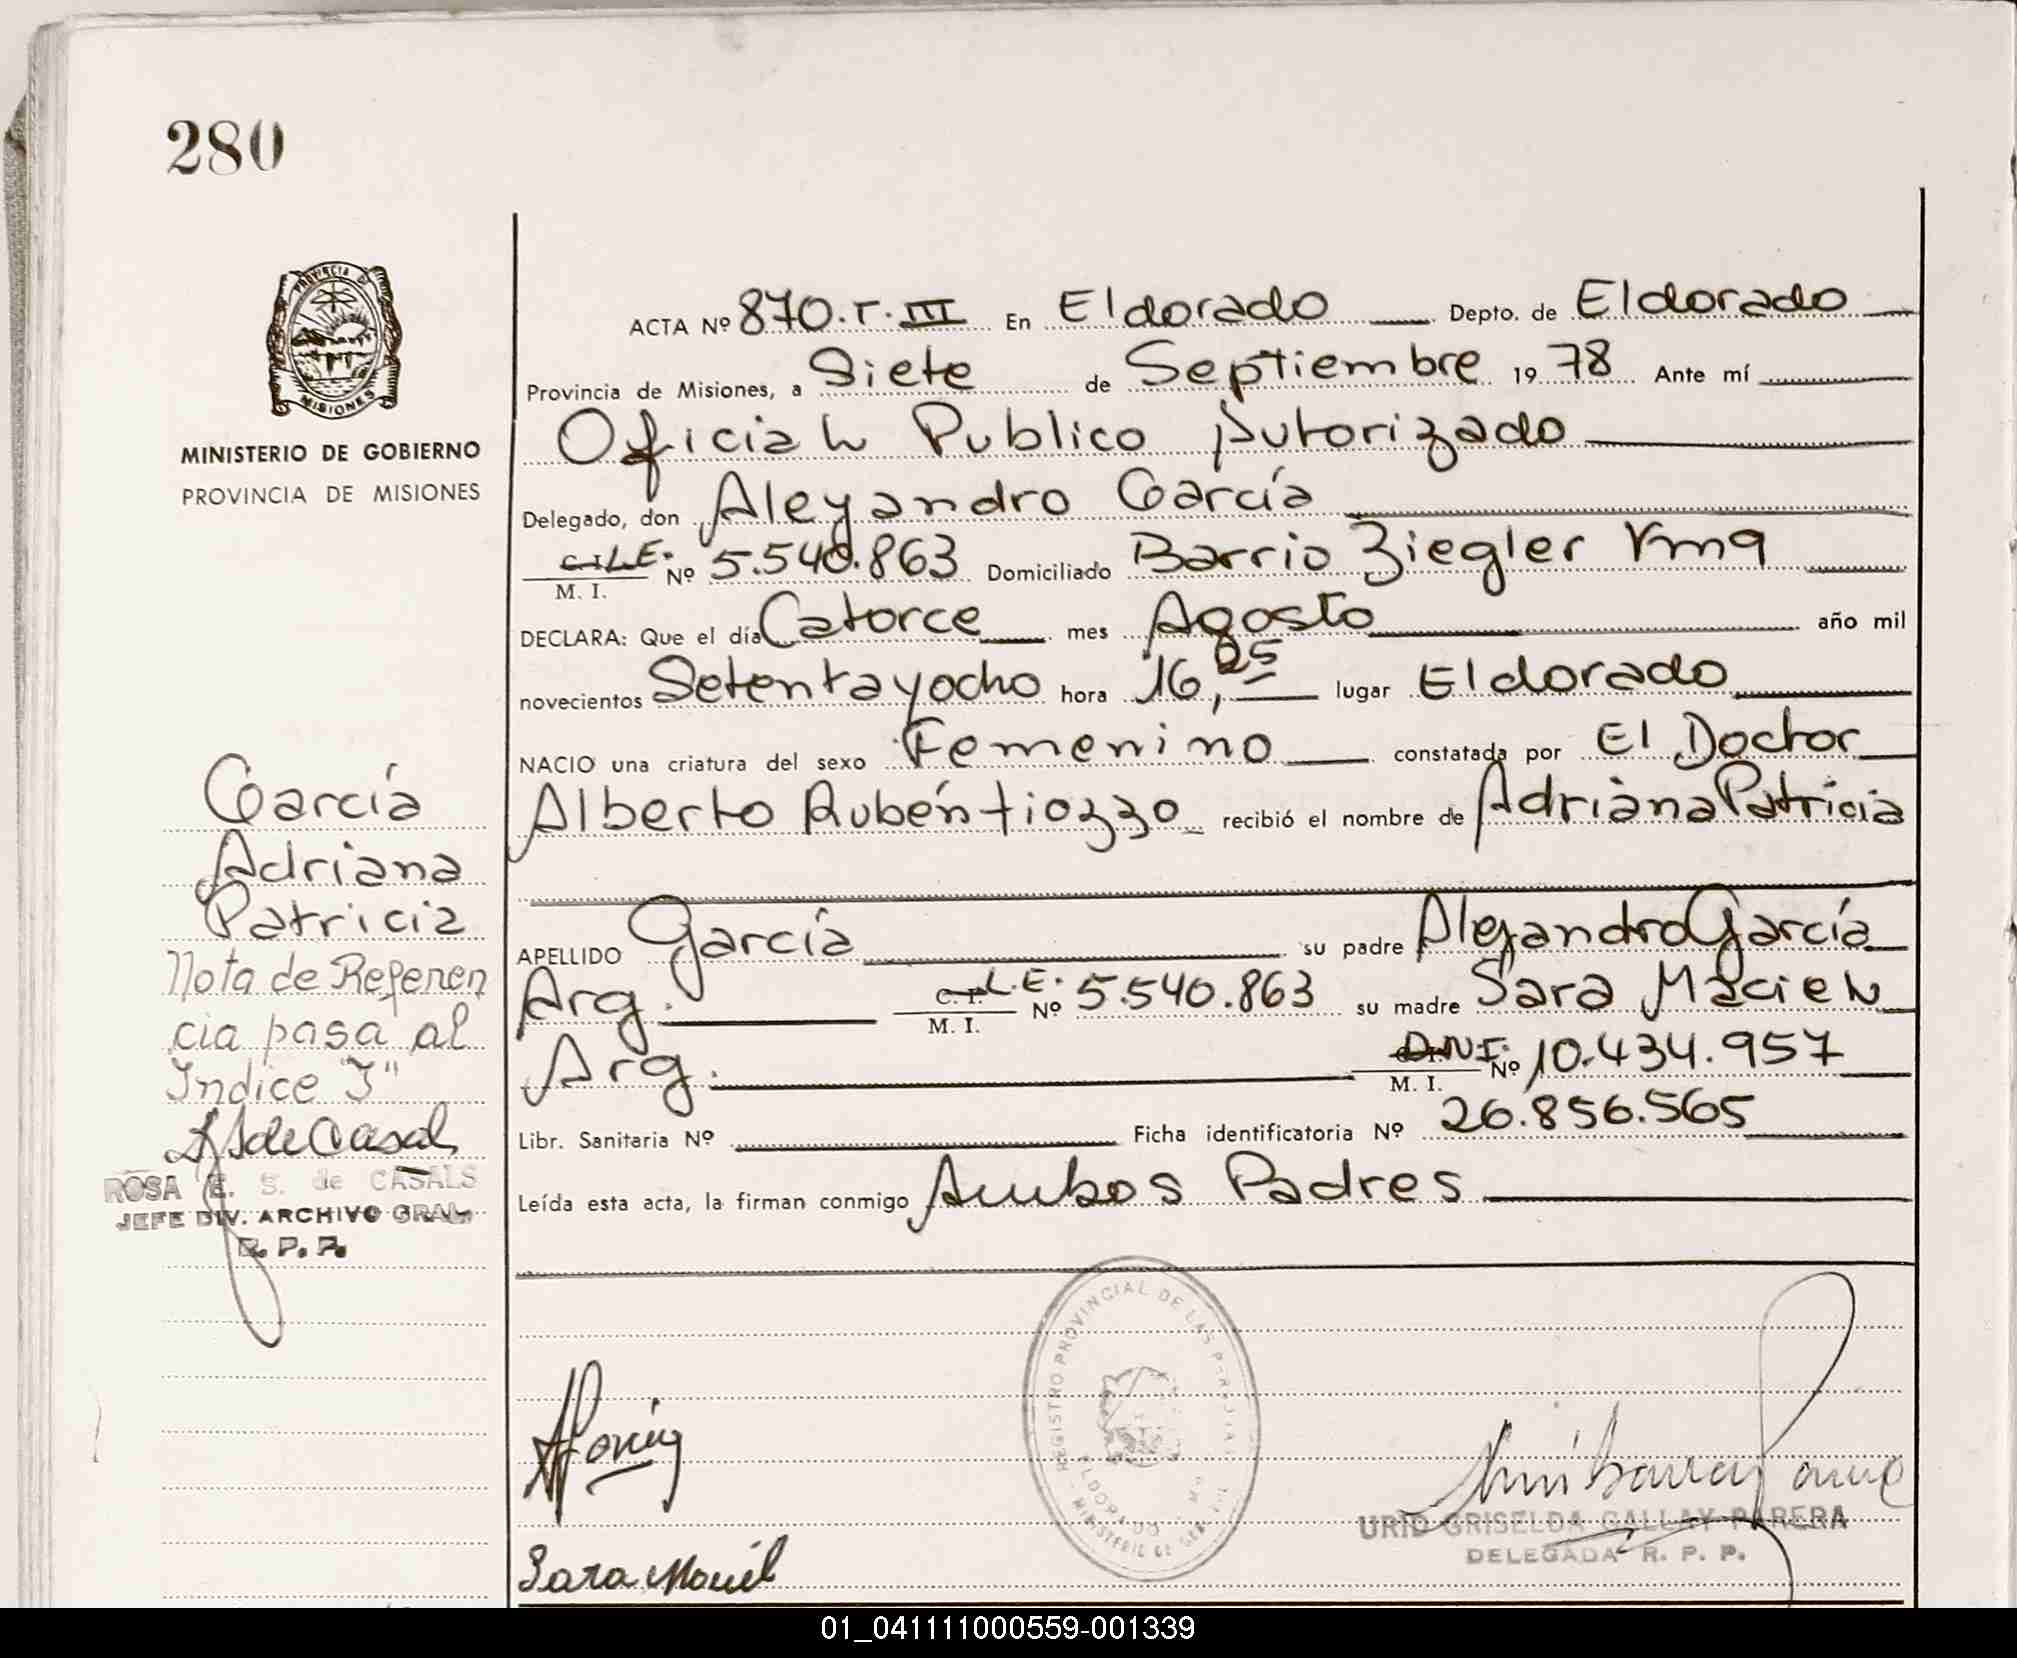 280
PROVINCIA DE
MISIONES
MINISTERIO DE GOBIERNO
PROVINCIA DE MISIONES
ACTA Nº 870.T.III En Eldorado Depto. de Eldorado
Provincia de Misiones, a Siete de Septiembre 1978 Ante mí
Oficial Publico Autorizado
Delegado, don Aleyandro García
C.I. L.E. M. I. Nº 5.540.863 Domiciliado Barrio Ziegler Km9
DECLARA: Que el día Catorce mes Agosto año mil
novecientos Setentayocho hora 16,25 lugar Eldorado
NACIO una criatura del sexo Femenino constatada por El Doctor
Alberto Rubén Tiozzo recibió el nombre de Adriana Patricia
APELLIDO García su padre Alejandro García
Arg. C.I. L.E. M. I. Nº 5.540.863 su madre Sara Maciel
Arg. D.N.I. M. I. Nº 10.434.957
Libr. Sanitaria Nº Ficha identificatoria Nº 26.856.565
Leída esta acta, la firman conmigo Ambos Padres
García
Adriana
Patricia
Nota de Referen
cia pasa al
Indice "J"
ROSA E. S. de CASALS
JEFE DIV. ARCHIVO GRAL.
R. P. P.
REGISTRO PROVINCIAL DE LAS PERSONAS
ELDORADO
Sara Maciel
URID GRISELDA GALLAY PARERA
DELEGADA R. P. P.
01_041111000559-001339